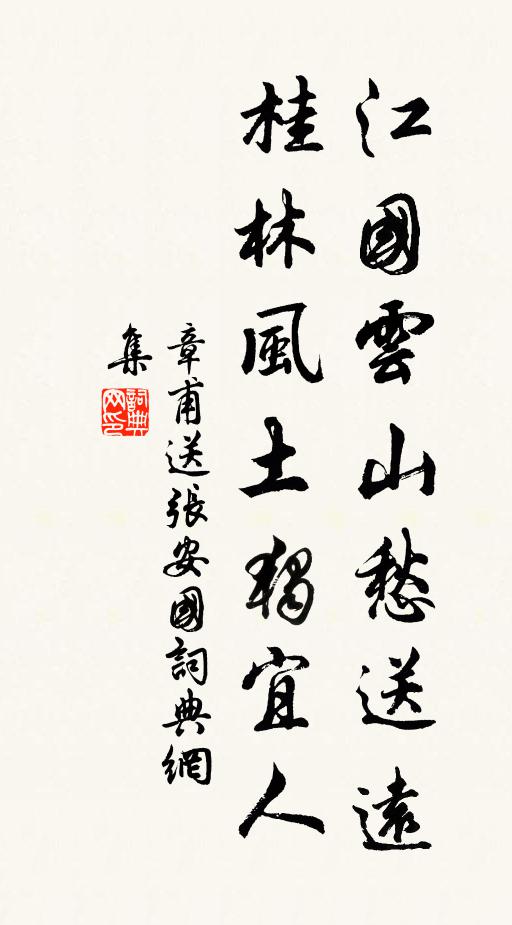 江國雲山愁送遠
桂林風土獨宜人
章甫送張安國詞典網
集
詞典
网印